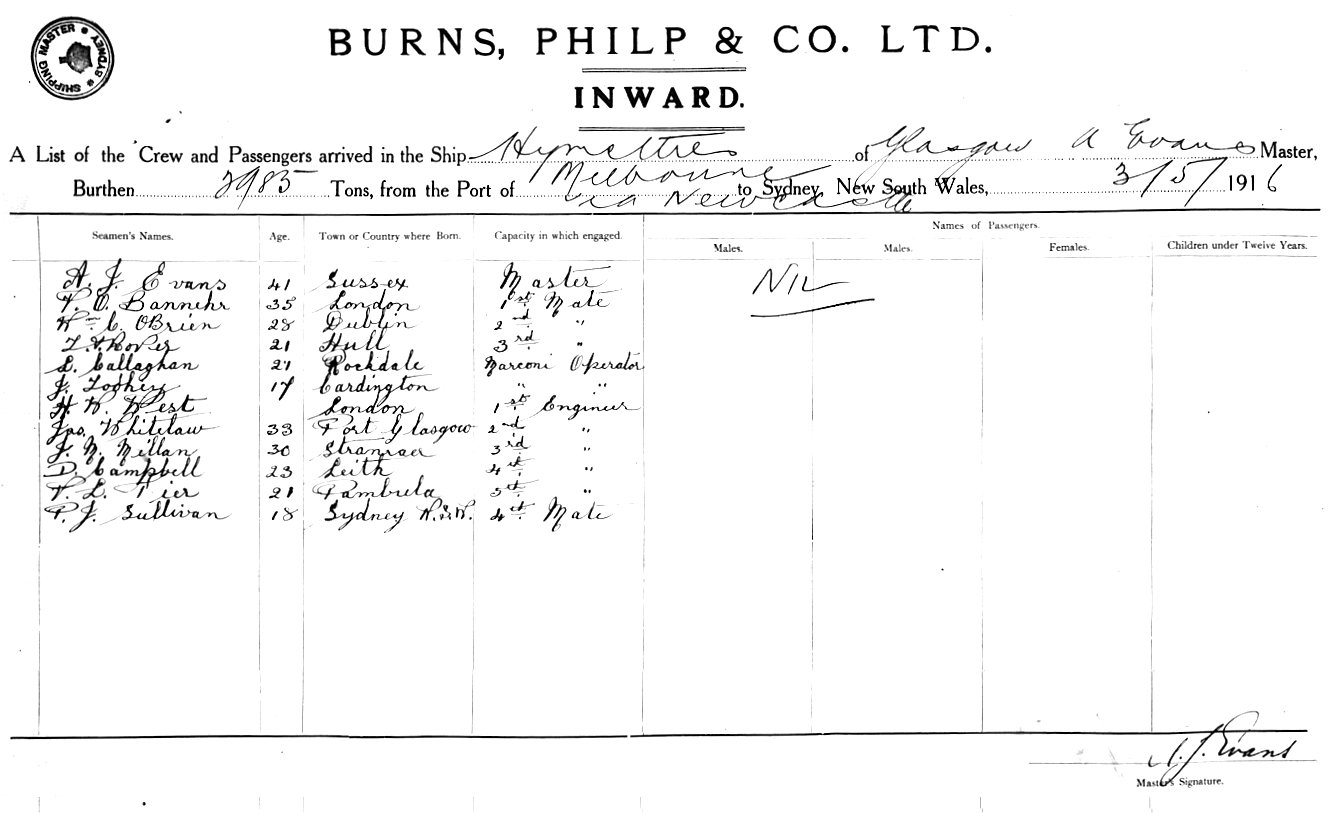 SHIPPING MASTER * SYDNEY *
BURNS, PHILP & CO. LTD.
INWARD.
A List of the Crew and Passengers arrived in the Ship Hymettus of Glasgow A Evans Master,
Burthen 2985 Tons, from the Port of Melbourne to Sydney, New South Wales, 3/5/1916
via Newcastle
Names of Passengers.
Seamen's Names. Age. Town or Country where Born. Capacity in which engaged. Males. Males. Females. Children under Twelve Years.
A. J. Evans 41 Sussex Master Nil
Bannehr 35 London 1st Mate
Wm C. OBrien 28 Dublin 2nd "
21 Hull 3rd "
Callaghan 21 Rockdale Marconi Operator
J. 17 Cardington " "
H. W. West London 1st Engineer
Jas. Whitelaw 33 Port Glasgow 2nd "
J. M. Millan 30 Stranraer 3rd "
D. Campbell 23 Leith 4th "
L. Pier 21 Pambula 5th "
P. J. Sullivan 18 Sydney N.S.W. 4th Mate
A. J. Evans
Master's Signature.